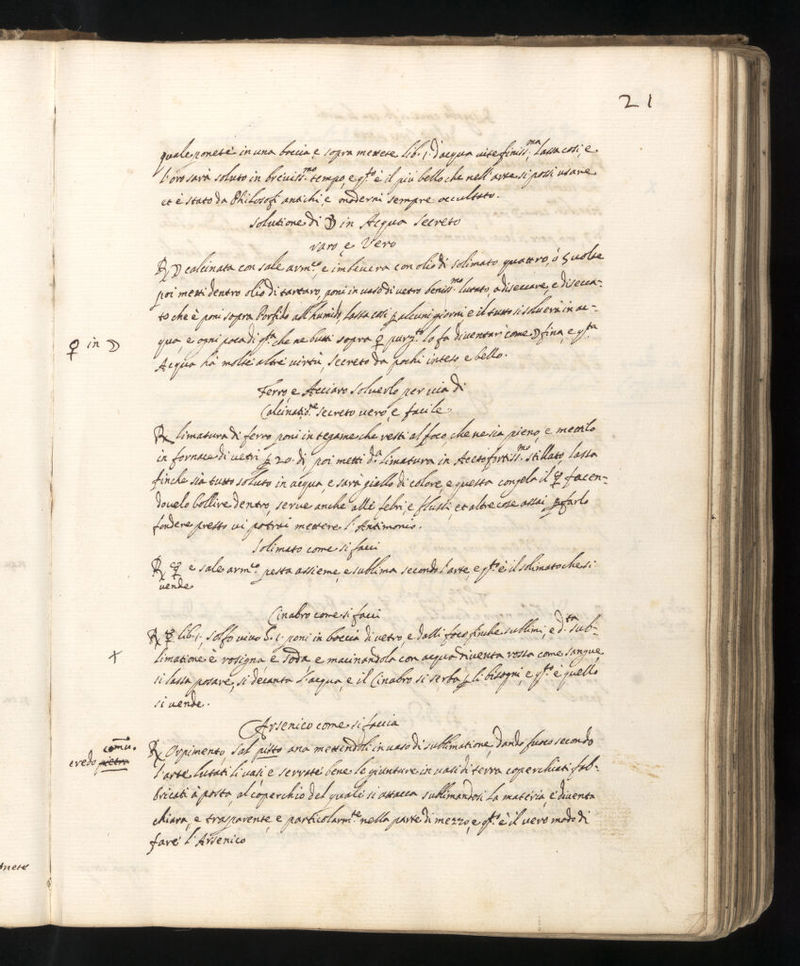 21
quale ponete in una boccia, e sopra mettete lib. j. d'acqua vite finiss.ma, lassa cosi, e
l'oro sarà soluto in breviss.mo tempo, e q.to è il più bello che nell'arte si possi usare
et è stato da Philosofi antichi, e moderni sempre occultato.
Solutione di ☽ in Acqua secreto
raro, e Vero
℞ ☽ calcinata con sale arm.co, e imbevera con olio di solimato quattro, ó 5 volte
poi metti dentro olio di tartaro, poni in vaso di vetro beniss.mo lutato, a diseccare, e disecca-
to che è poni sopra Porfido all'humido, lassa cosi p alcuni giorni e il tutto si solverà in ac-
qua, e ogni poca di q.ta che ne butti sopra ☿ purg.to lo fa diventar come ☽ fina, e q.ta
Acqua hà molte altre virtù, secreto da pochi inteso e bello.
☿ in ☽
Ferro, e Acciaro solverlo per via di
Calcinat.ne secreto vero, e facile.
℞ limatura di ferro poni in tegame che resti al foco, che ne sia pieno, e mettilo
in fornace di vetri p 20. dì poi metti d.a limatura in Aceto fortiss.mo stillato lassa
finche sia tutto soluto in acqua, e sarà giallo di colore, e questa congela il ☿ facen-
dovelo bollire dentro, serve anche alle febri, e flussi, et altre cose assai, p farlo
fondere presto vi potrai mettere l'Antimonio.
Solimato come si facci
℞ ☿ e sale arm.co pesta assieme, e sublima secondo l'arte, e q.to è il solimato che si
vende
Cinabro come si facci
℞ ☿ lib. j, solfo vivo ℥. j. poni in boccia di vetro, e dalli foco finche sublimi, e d.ta sub-
limatione è rosigna e soda, e macinandola con acqua diventa rossa come sangue,
si lassa posare, si decanta l'acqua, e il Cinabro si serba p li bisogni, e q.to è quello
si vende.
+
Arsenico come si faccia
℞ Orpimento, sal pisto ana mettendoli in vaso di sublimatione dando fuoco secondo
l'arte, lutati li vasi, e serrate bene le gionture in vasi di terra coperchiati fab-
bricati à posta, al coperchio del quali si attacca sublimandosi la materia, e diventa
chiara, e trasparente, e particolarm.te nella parte di mezzo, e q.to è il vero modo di
fare l'Arsenico
comu.
credo pietra